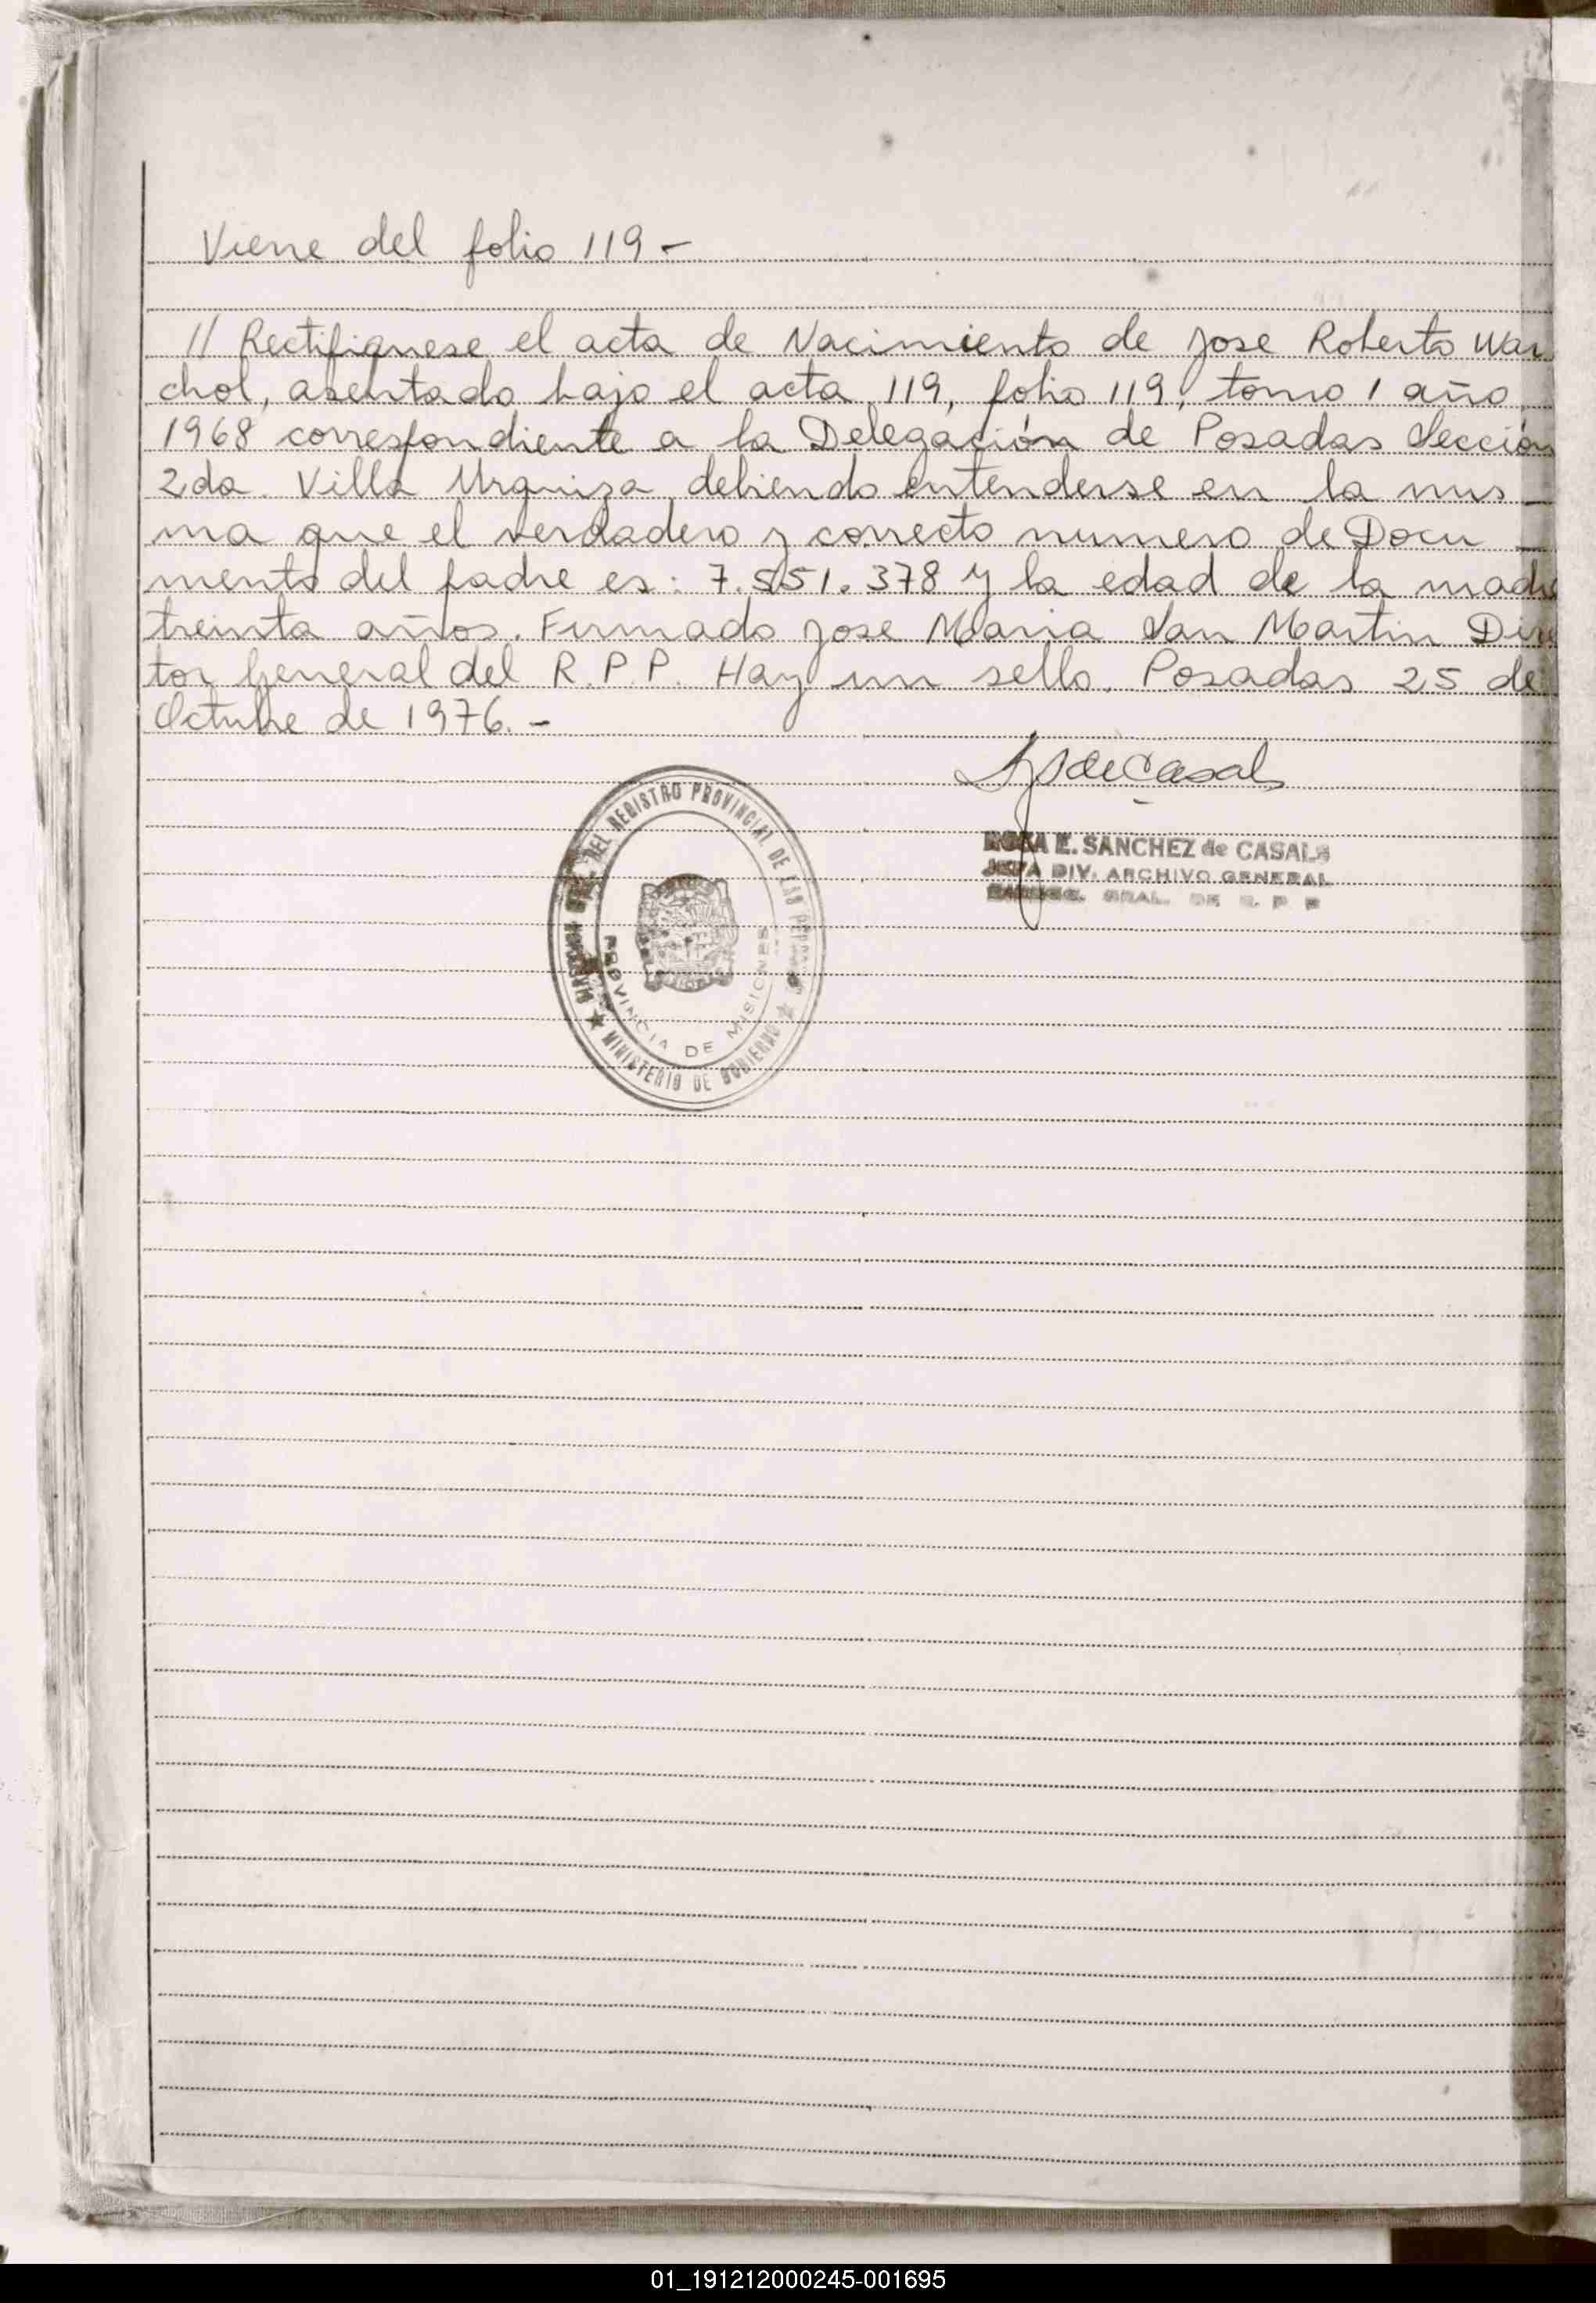 Viene del folio 119 -
// Rectifiquese el acta de Nacimiento de Jose Roberto War
chol, asentado bajo el acta 119, folio 119, tomo 1 año
1968 correspondiente a la Delegación de Posadas Sección
2da. Villa Urquiza, debiendo entenderse en la mis
ma que el verdadero y correcto numero de Docu
mento del padre es: 7.551.378 y la edad de la madre
treinta años. Firmado Jose Maria San Martin Direc
tor General del R.P.P. Hay un sello. Posadas 25 de
Octubre de 1976. -
de Casals
ROSA E. SANCHEZ de CASALS
JEFA DIV. ARCHIVO GENERAL
GRAL. DE R. P. P.
DEL REGISTRO PROVINCIAL DE LAS PERSONAS
PROVINCIA DE MISIONES
★ MINISTERIO DE GOBIERNO ★
01_191212000245-001695